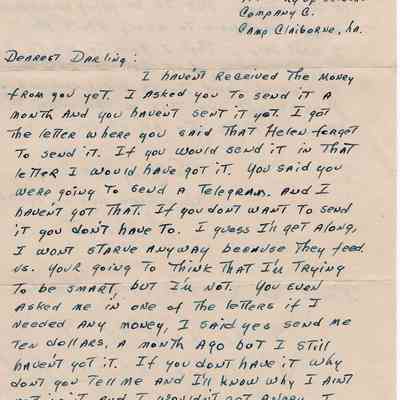 Company C.
Camp Claiborne, La.
Dearest Darling:
I haven't received the money
from you yet. I asked you to send it a
month and you haven't sent it yet. I got
the letter where you said that Helen forgot
to send it. If you would send it in that
letter I would have got it. You said you
were going to send a Telegram. And I
haven't got that. If you don't want to send
it you don't have to. I guess I'll get along,
I wont starve anyway because they feed
us. Your going to think that I'm trying
to be smart, but I'm not. You even
asked me in one of the letters if I
needed any money, I said yes send me
ten dollars, a month ago but I still
haven't got it. If you dont have it why
dont you tell me and I'll know why I aint